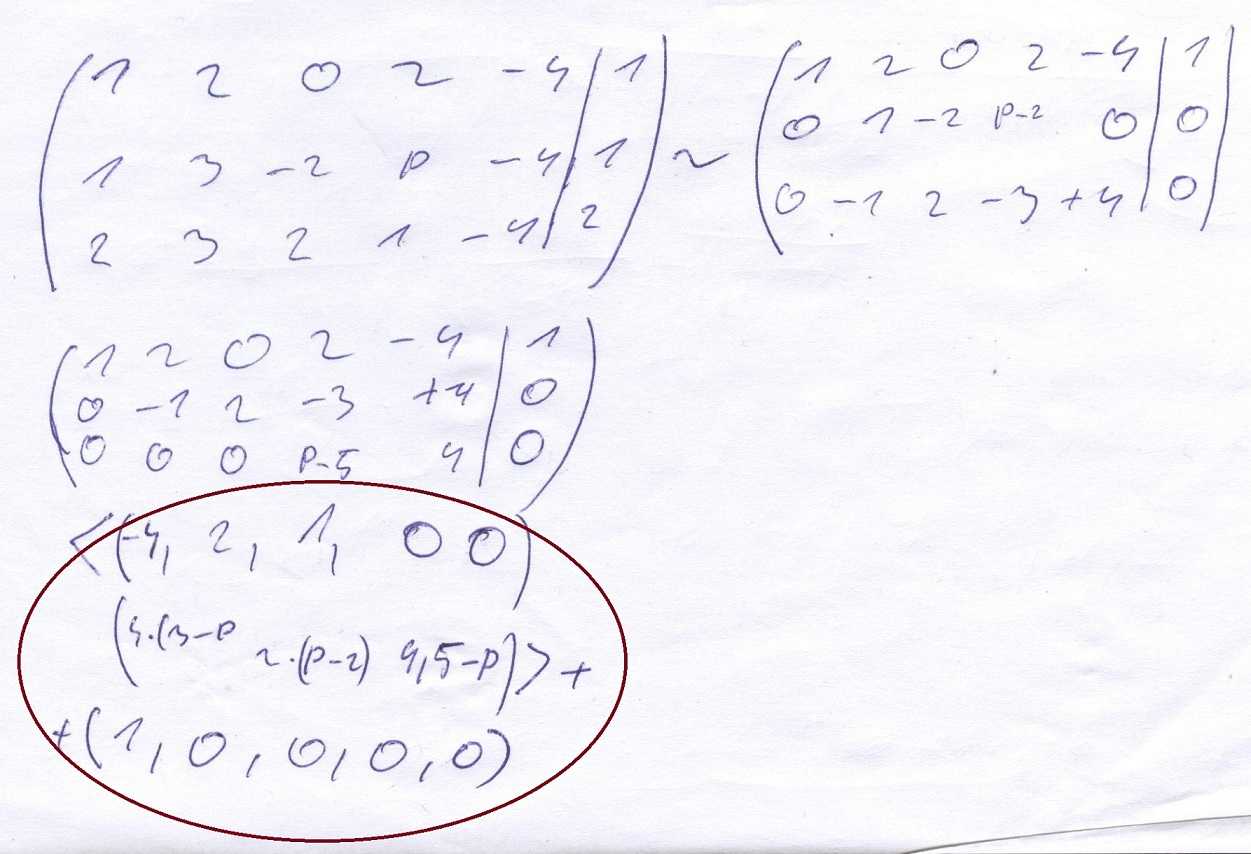 ( 1 2 0 2 -4 | 1 ) ~ ( 1 2 0 2 -4 | 1 )
( 1 3 -2 p -4 | 1 ) ( 0 1 -2 p-2 0 | 0 )
( 2 3 2 1 -4 | 2 ) ( 0 -1 2 -3 +4 | 0 )
( 1 2 0 2 -4 | 1 )
( 0 -1 2 -3 +4 | 0 )
( 0 0 0 p-5 4 | 0 )
<(-4, 2, 1, 0 0)
(4·(3-p 2·(p-2) 4,5-p)> +
+(1, 0, 0, 0, 0)